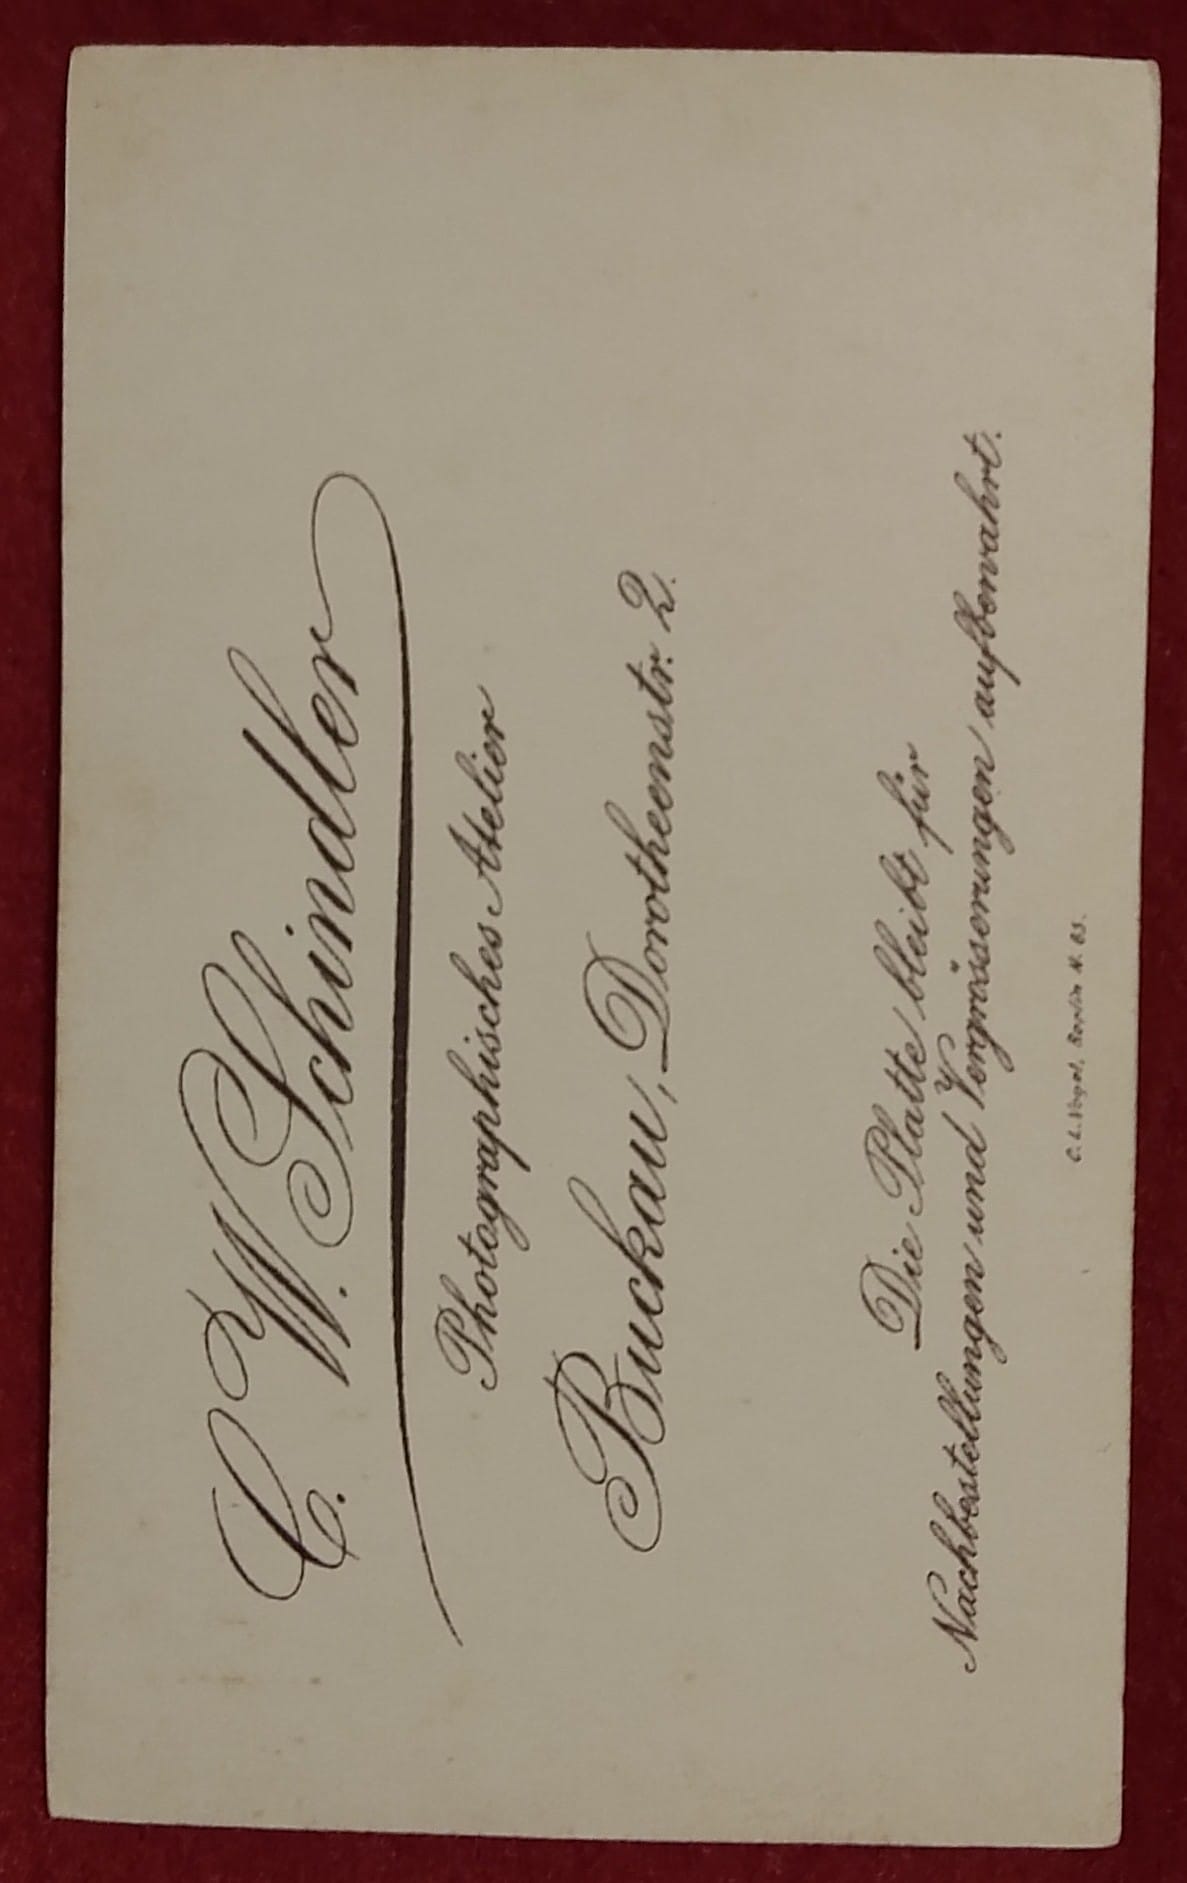 C. W. Schindler
Photographisches Atelier
Buckau, Dorotheenstr. 2.
Die Platte bleibt für
Nachbestellungen und Vergrösserungen aufbewahrt.
C. L. Vogel, Berlin N. 65.